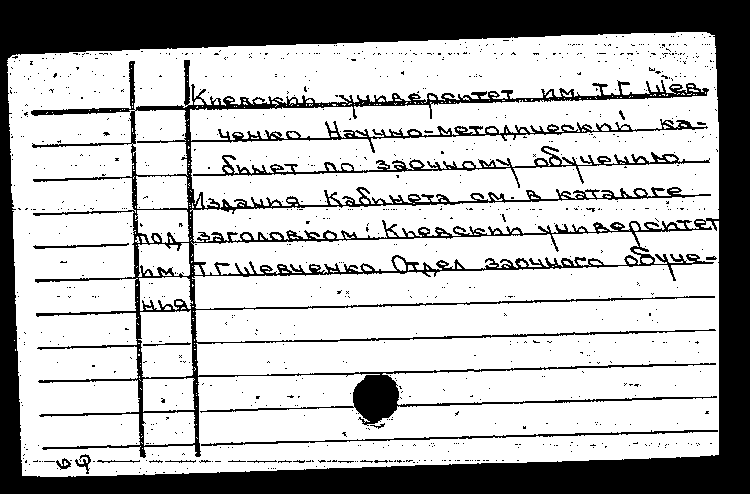 Киевский университет им. Т.Г. Шев-
ченко. Научно-методический ка-
бинет по заочному обучению.
Издания Кабинета см. в каталоге
под заголовком: Киевский университет
им. Т.Г.Шевченко. Отдел заочного обуче-
ния